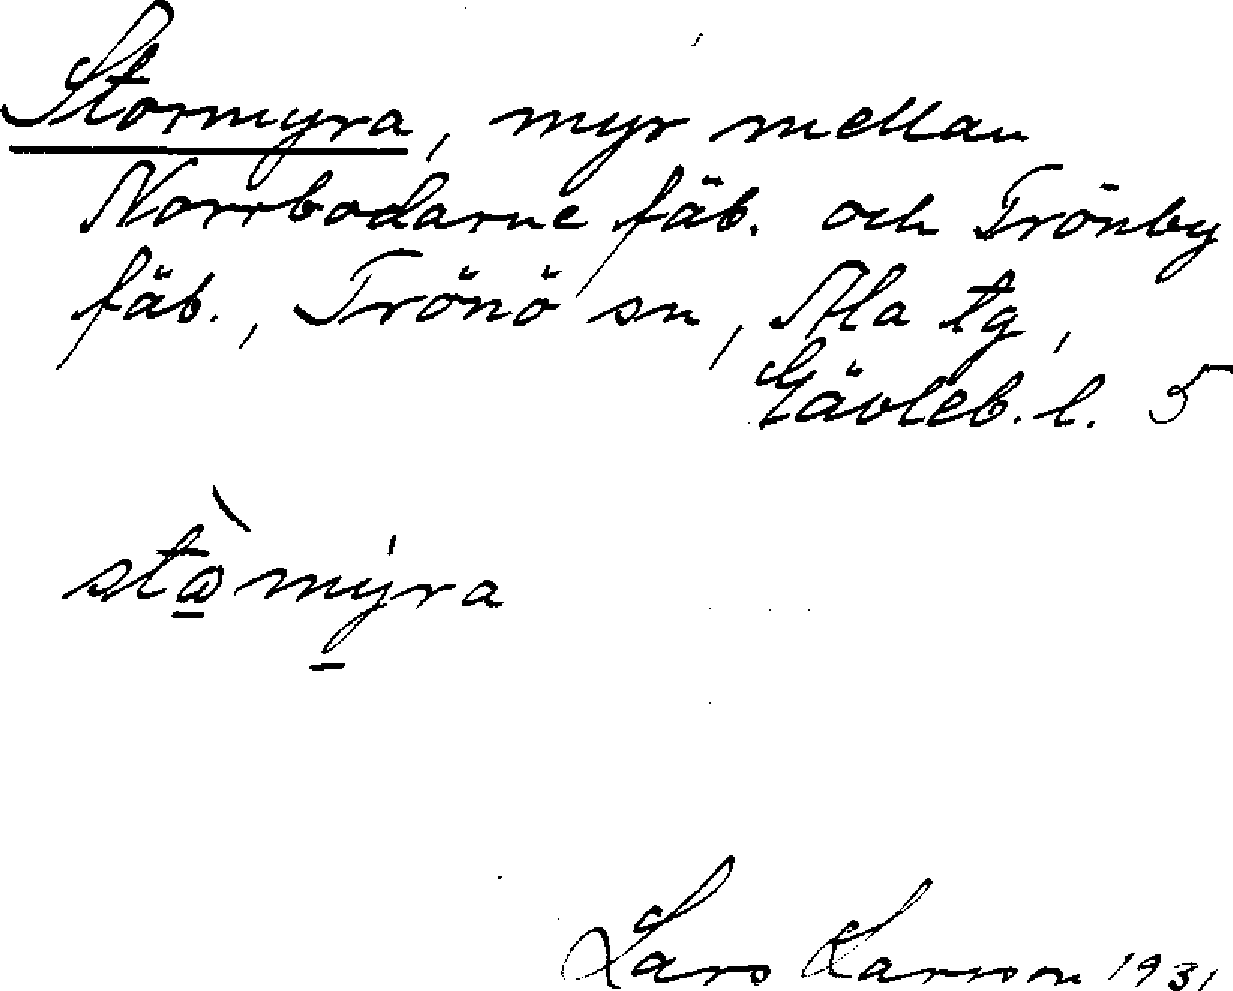 Stormyra, myr mellan
Norrbodarne fäb. och Trönby
fäb., Trönö sn, Ala tg,
Gävleb. l. 5
stὼ̲mý̲ra
Lars Larsson 1931